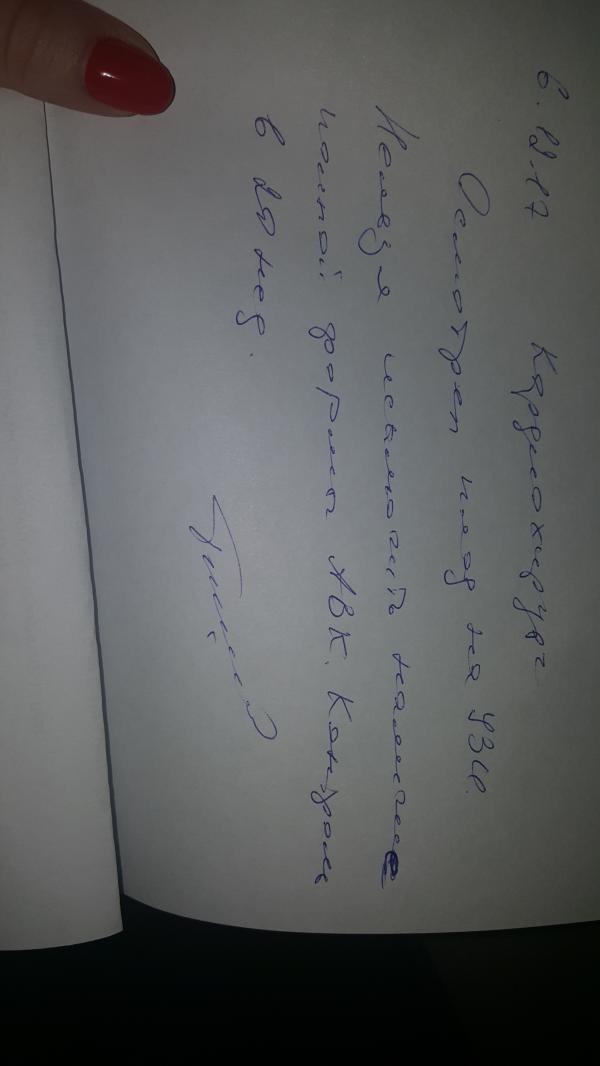 6.12.17 Кардиохирург
Осмотрен плод на УЗИ.
Нельзя исключить наличие
полной формы АВК. Контроль
в 20 нед.